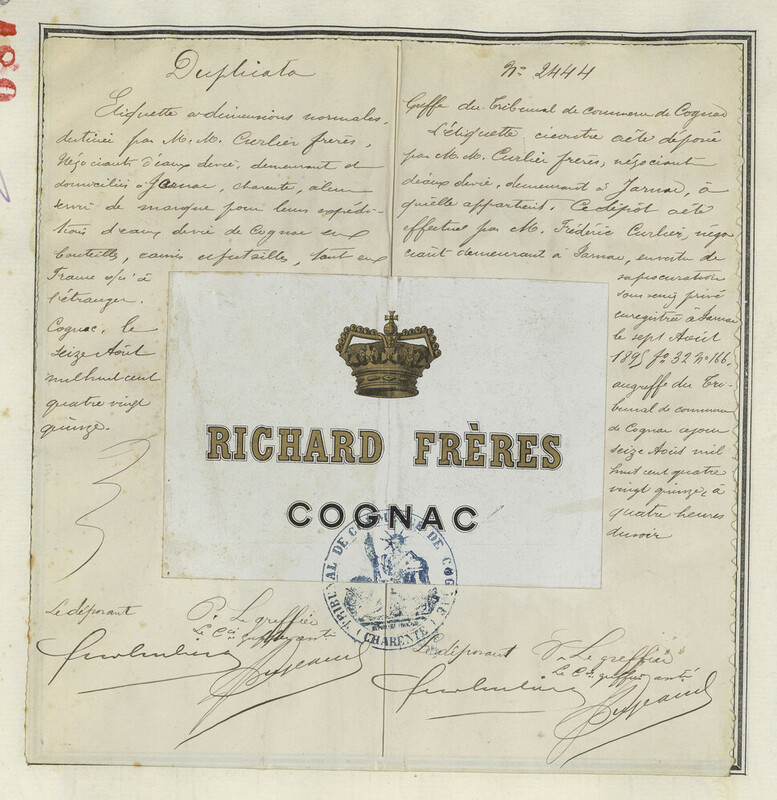 Duplicata
Etiquette a dimensions normales,
destinée par M. M. Curlier frères,
Négociants d'eaux de vie, demeurant et
domiciliés à Jarnac, charente, à leur
servir de marque pour leurs expédi-
tions d'eaux de vie de Cognac en
bouteilles, caisses et futailles, tant en
France qu'à
l'étranger.
Cognac, le
seize Août
mil huit cent
quatre vingt
quinze.
Le déposant
P. Le greffier
Le Cis greffier
No 2444
Greffe du Tribunal de commerce de Cognac
L'étiquette ci contre a été déposé
par M. M. Curlier frères, négociant
d'eaux de vie, demeurant à Jarnac, à
qu'elle appartient. Ce dépôt a été
effectué par M. Frédéric Curlier, négo-
ciant demeurant à Jarnac, en vertu de
sa procuration
sous seing privé
enregistrée à Jarnac
le sept Août
1895 fo 32 No 166,
au greffe du Tri-
bunal de commerce
de Cognac ce jour
seize Août mil
huit cent quatre
vingt quinze, à
quatre heures
du soir
Le déposant
P. Le greffier
Le Cis greffier
RICHARD FRÈRES
COGNAC
TRIBUNAL DE COMMERCE DE COGNAC
(CHARENTE)